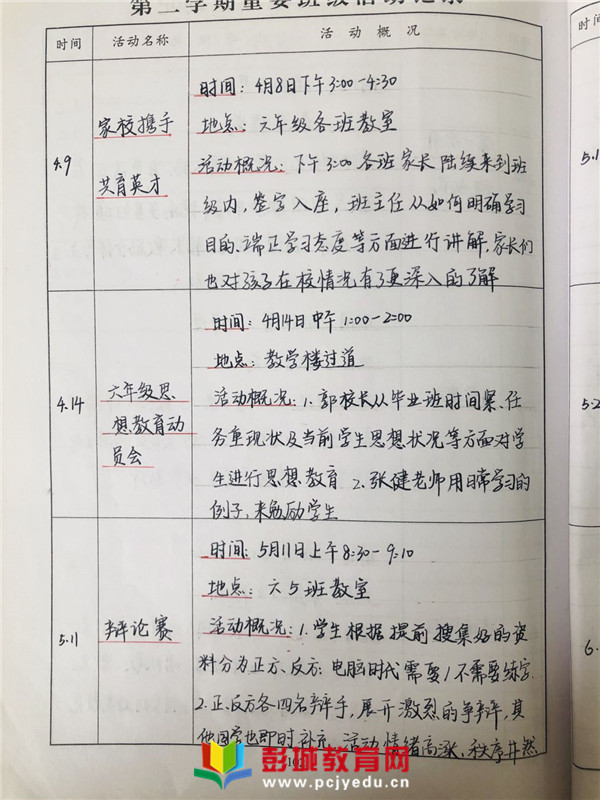 第二学期重要班级活动记录
时间 活动名称 活动概况
4.9
家校携手
共育英才
时间：4月8日下午3:00-4:30
地点：六年级各班教室
活动概况：下午3:00各班家长陆续来到班
级内，签字入座，班主任从如何明确学习
目的、端正学习态度等方面进行讲解，家长们
也对孩子在校情况有了更深入的了解
4.14
六年级思
想教育动
员会
时间：4月14日中午1:00-2:00
地点：教学楼过道
活动概况：1.郭校长从毕业班时间紧、任
务重现状及当前学生思想状况等方面对学
生进行思想教育 2.张健老师用日常学习的
例子，来勉励学生
5.11
辩论赛
时间：5月11日上午8:30-9:10
地点：六5班教室
活动概况：1.学生根据提前搜集好的资
料分为正方、反方：电脑时代需要/不需要练字.
2.正、反方各四名辩手，展开激烈的争辩，其
他同学也即时补充，活动情绪高涨，秩序井然
彭城教育网
www.pcjyedu.cn
5.1
5.2
6.